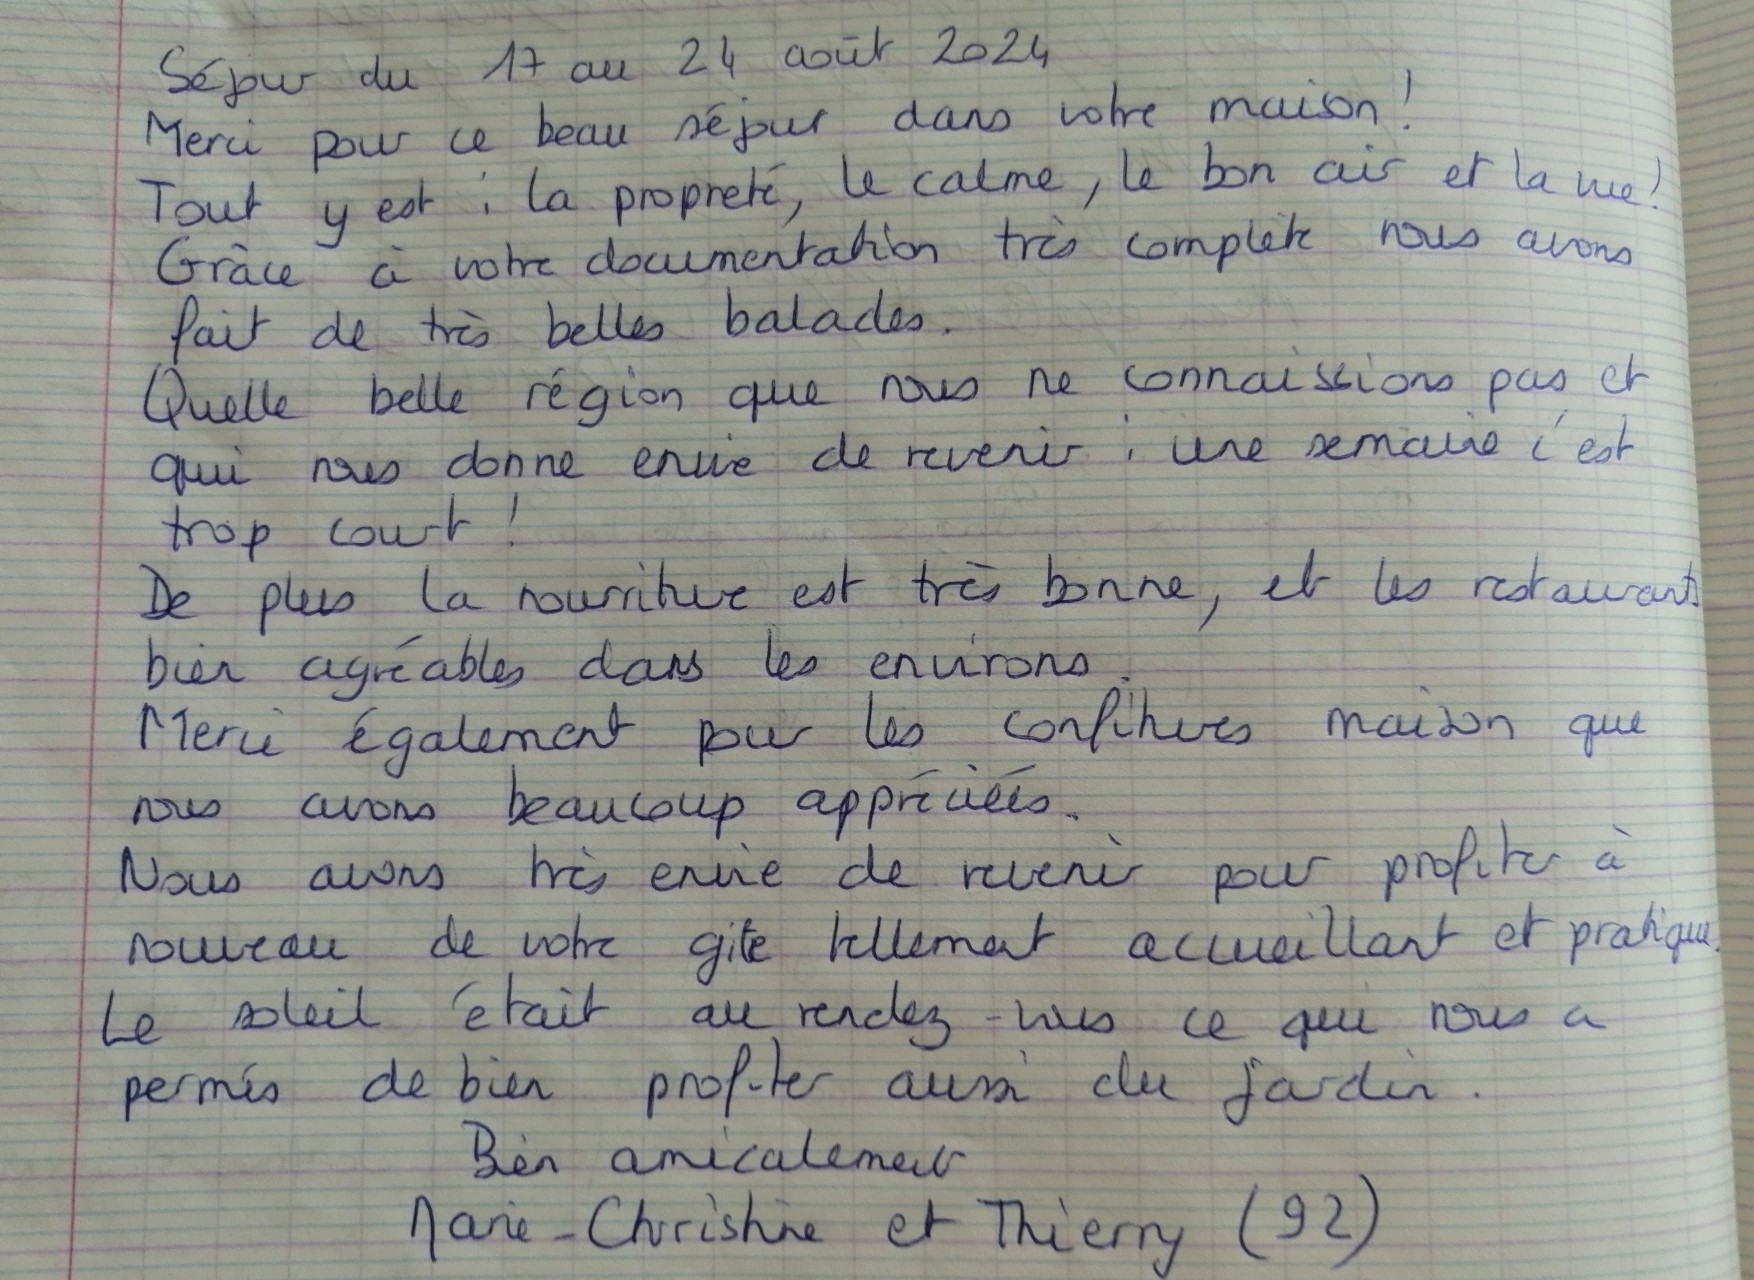 Séjour du 17 au 24 août 2024
Merci pour ce beau séjour dans votre maison !
Tout y est : la propreté, le calme, le bon air et la vue !
Grâce à votre documentation très complète nous avons
fait de très belles balades.
Quelle belle région que nous ne connaissions pas et
qui nous donne envie de revenir : une semaine c'est
trop court !
De plus la nourriture est très bonne, et les restaurants
bien agréables dans les environs.
Merci également pour les confitures maison que
nous avons beaucoup appréciées.
Nous avons très envie de revenir pour profiter à
nouveau de votre gite tellement accueillant et pratique.
Le soleil était au rendez-vous ce qui nous a
permis de bien profiter aussi du jardin.
Bien amicalement
Marie-Christine et Thierry (92)